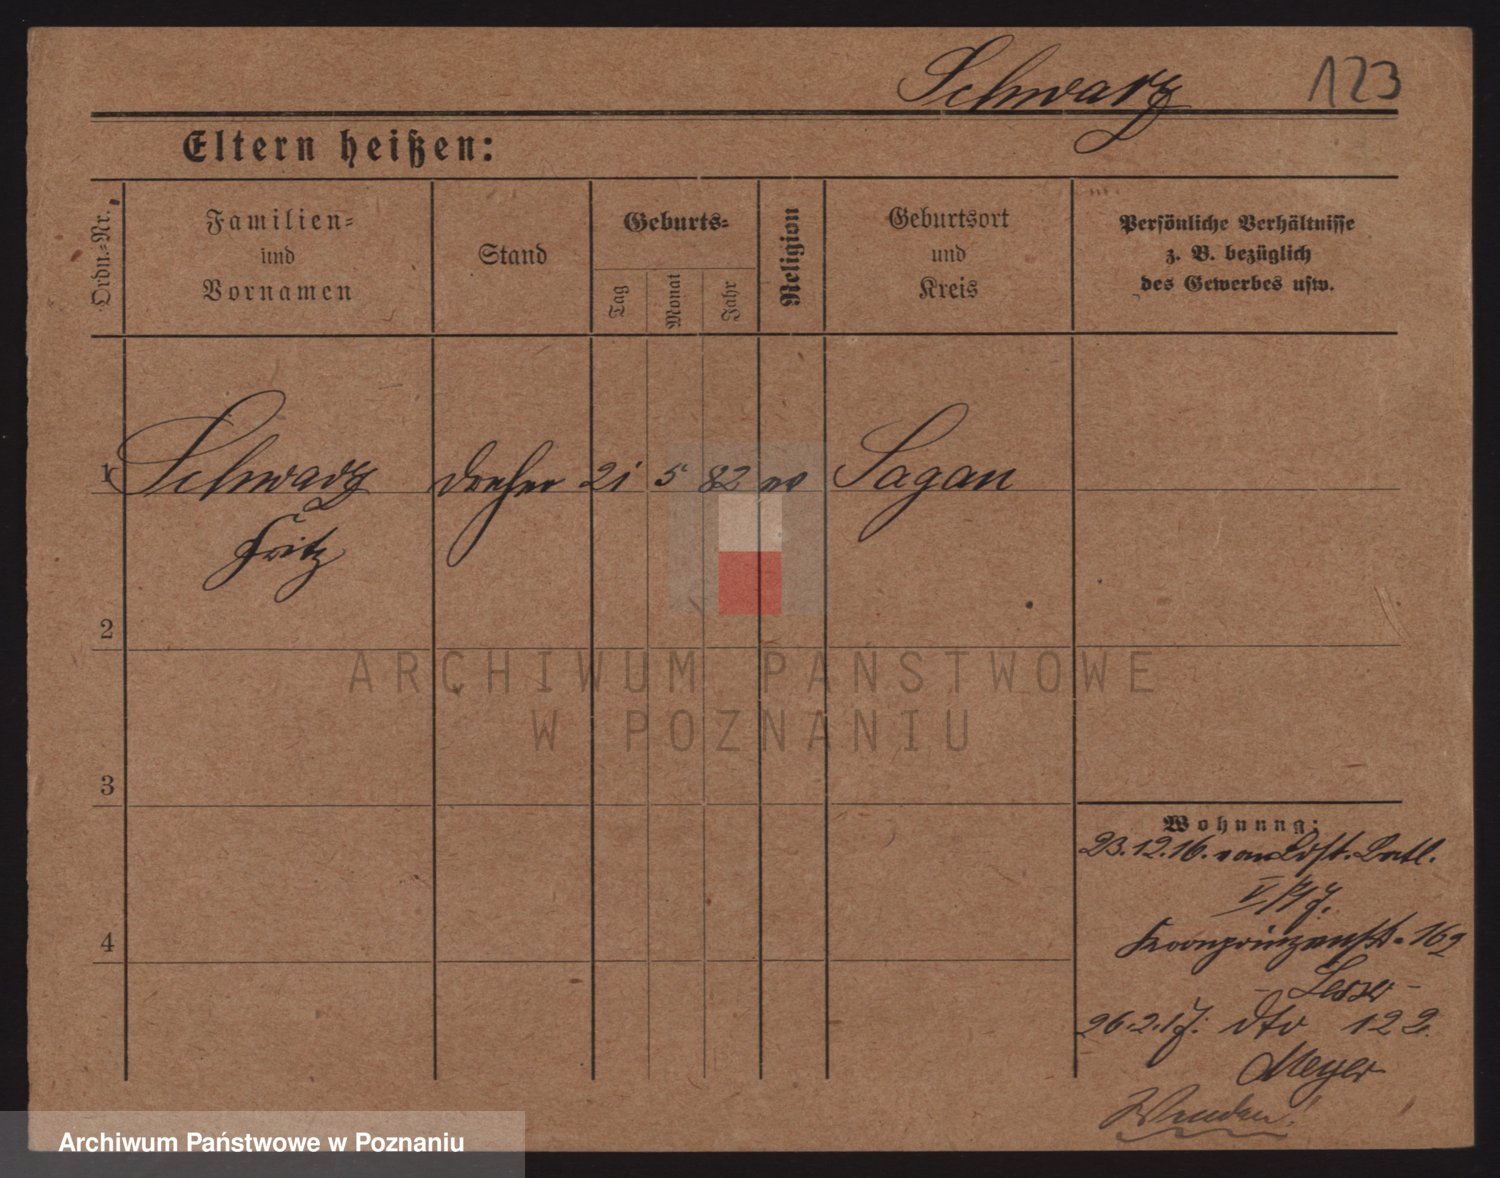 Schwarz 123
Eltern heißen:
Ordn.=Nr.
Familien=
und
Vornamen
Stand
Geburts=
Tag
Monat
Jahr
Religion
Geburtsort
und
Kreis
Persönliche Verhältnisse
z. B. bezüglich
des Gewerbes usw.
1 Schwarz Dreher 21 5 82 Sagan
Fritz
2
ARCHIWUM PAŃSTWOWE
W POZNANIU
3
Wohnung:
23.12.16. von
Kronprinzenstr. 162
26.2.17. dto 122.
Meyer
4
Wenden!
Archiwum Państwowe w Poznaniu